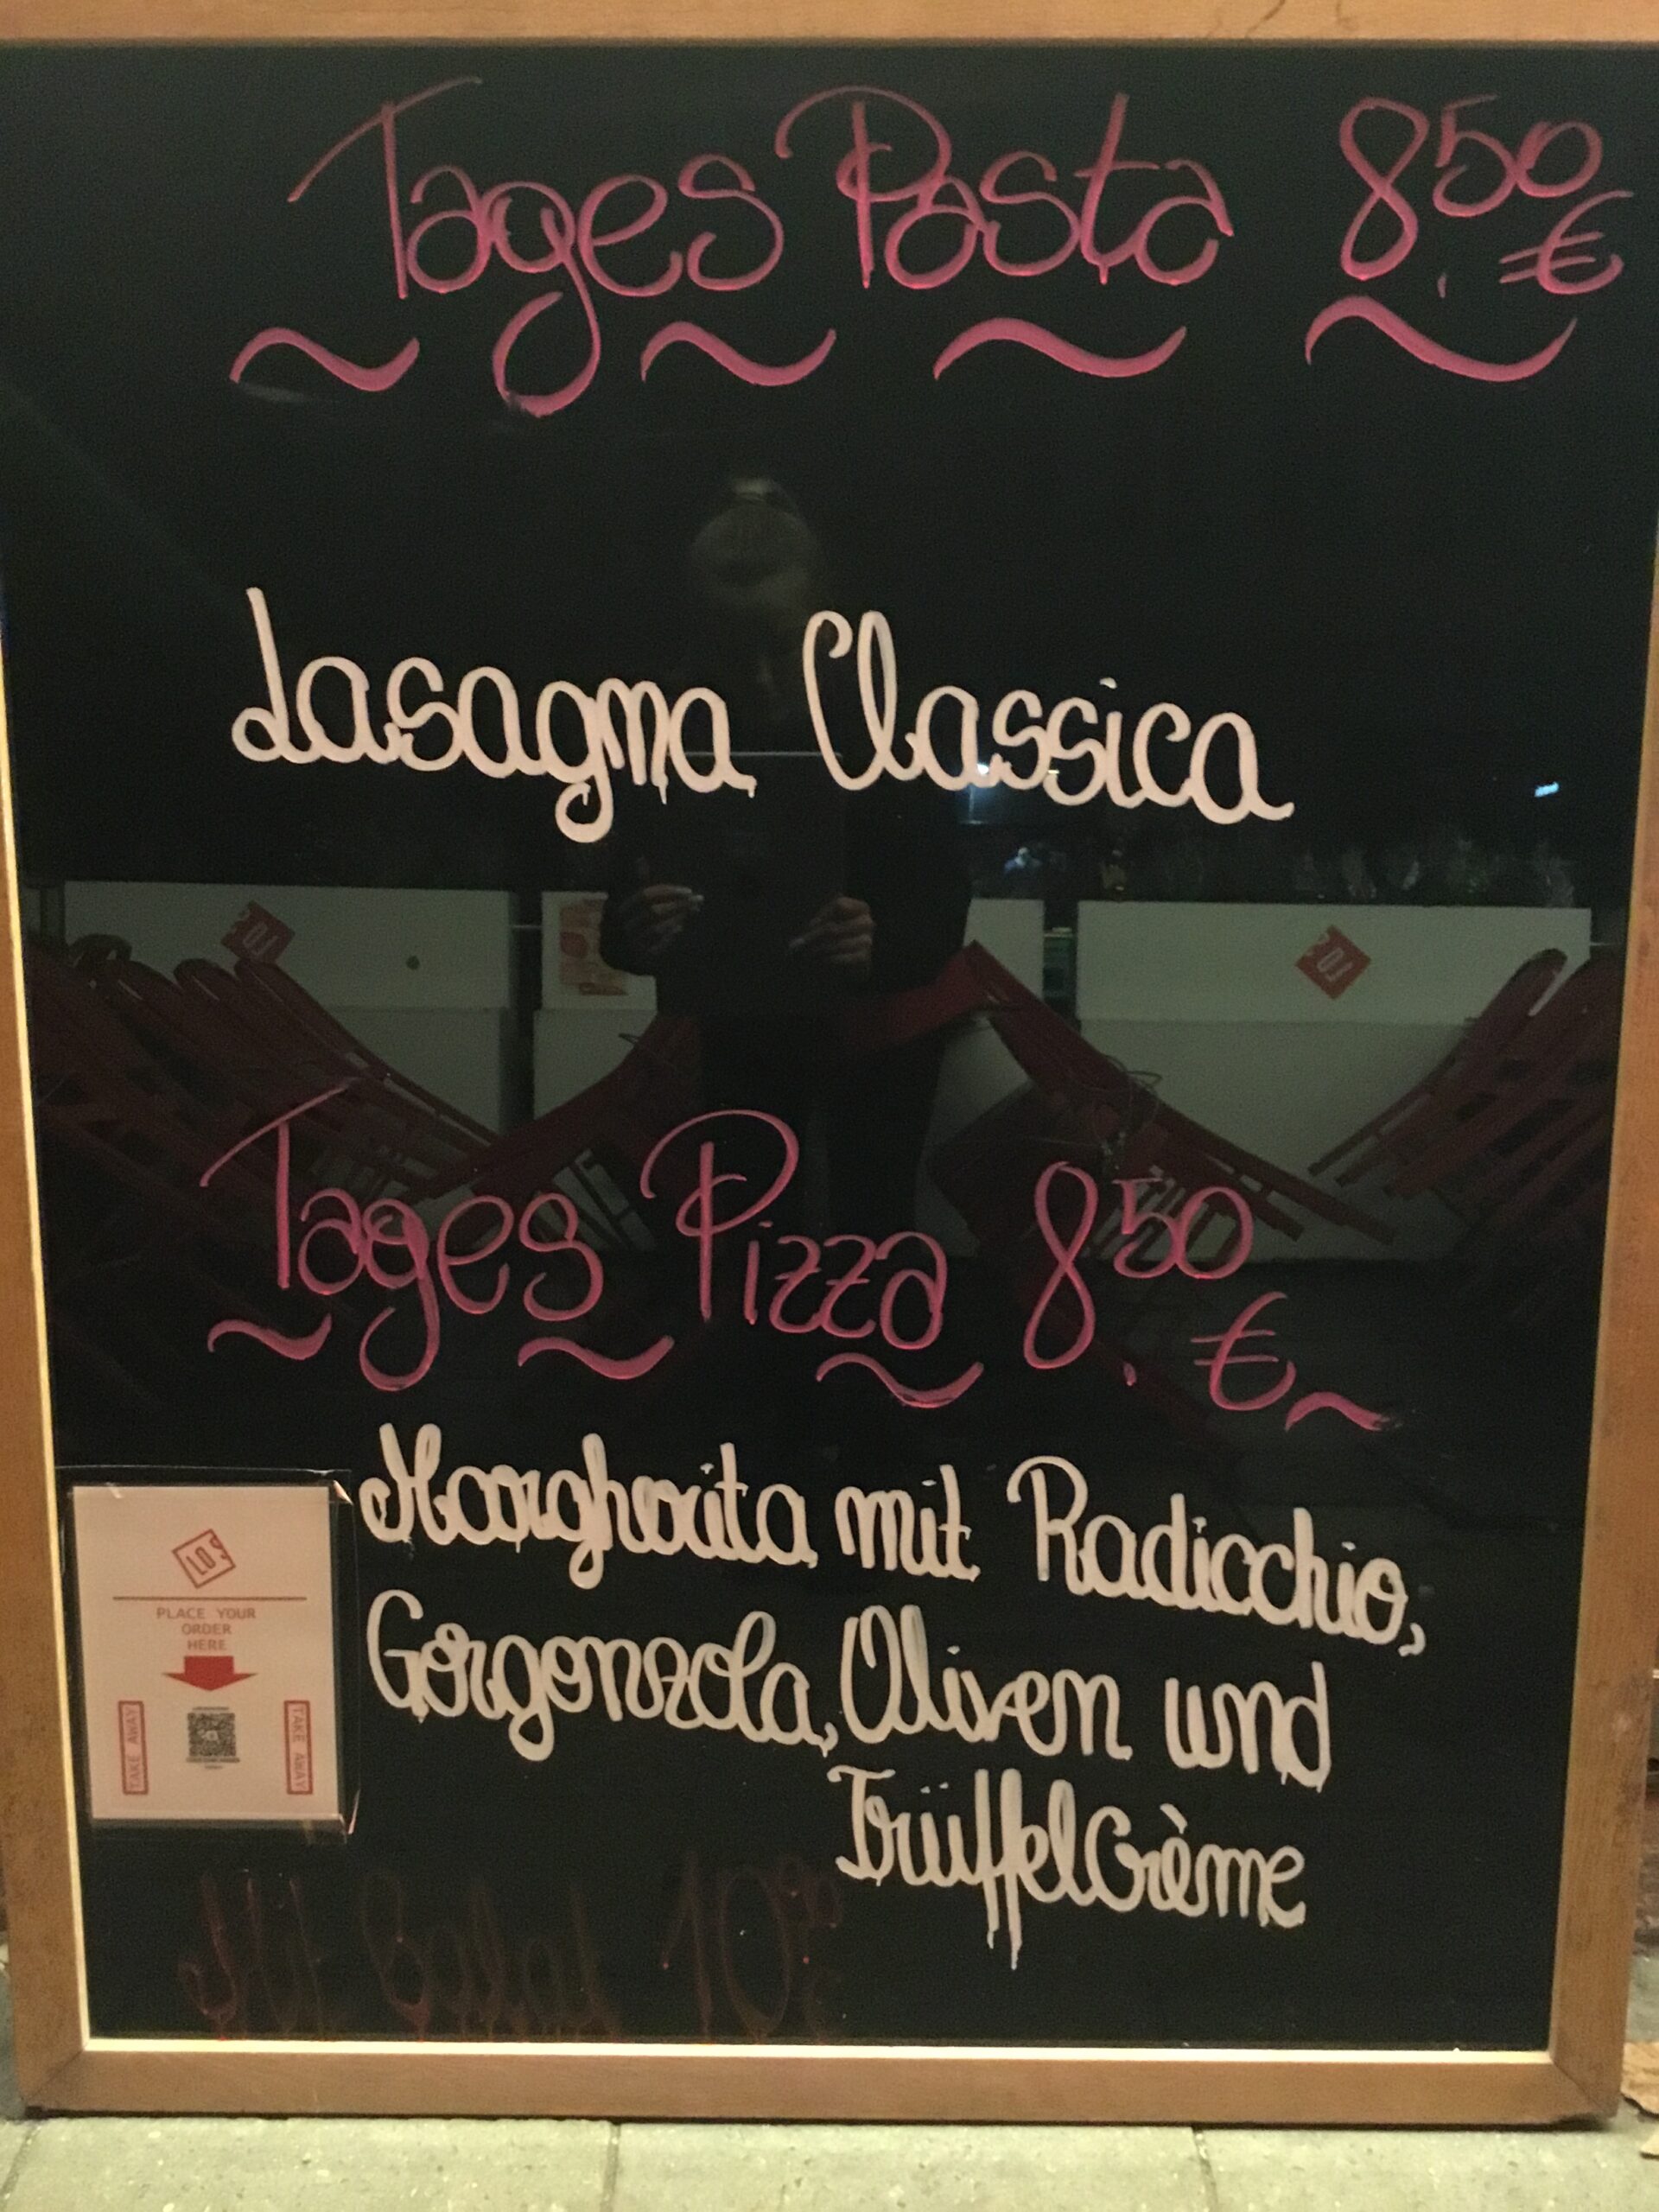 Tages Pasta 8,50 €
Lasagna Classica
Tages Pizza 8,50 €
Margherita mit Radicchio,
Gorgonzola, Oliven und
TrüffelCrème
LOS
PLACE YOUR
ORDER
HERE
TAKE AWAY
TAKE AWAY
Mit Salat 10,00 €